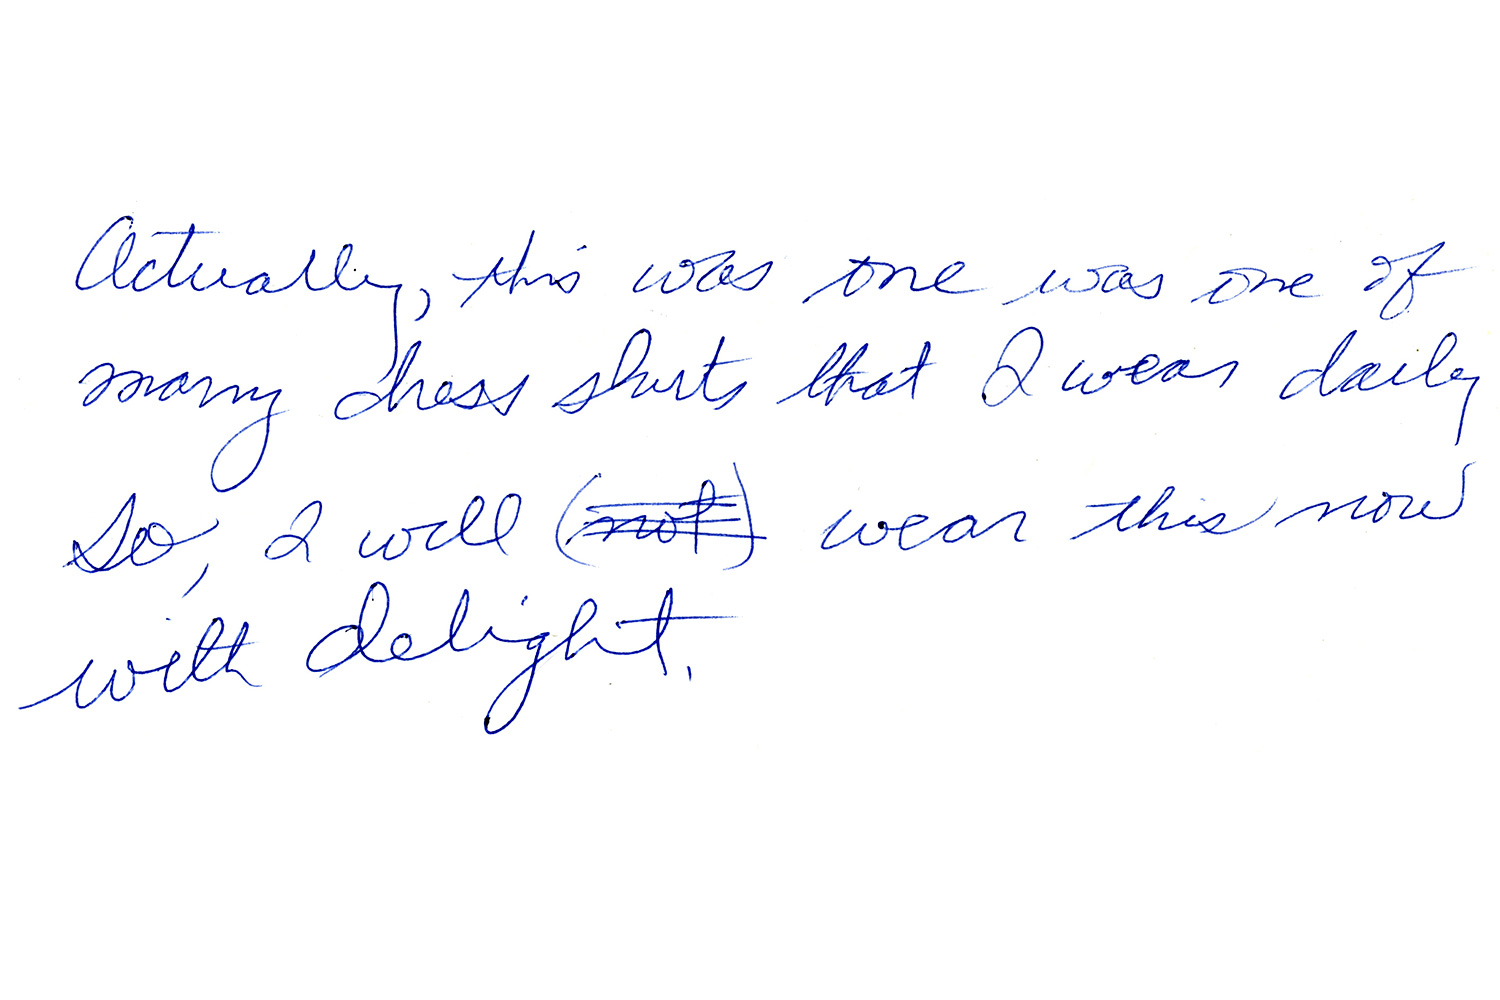 Actually, this was one was one of
many dress shirts that I wear daily
So, I will (not) wear this now
with delight.